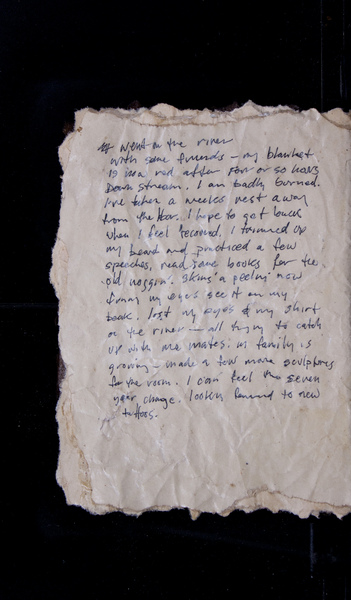 went in the river
with some friends – my blanket
is red after four or so hours
Down stream. I am badly burned.
I've taken a weeks rest away
from the bar. I hope to get back
when I feel second. I trimmed up
my beard and practiced a few
speeches, read some books for the
old noggin. Skins' a peelin' now
from my eyes see it on my
book. lost my eyes & my shirt
on the river – all trying to catch
up with me mates. family is
growing – made a few more sculptures
for the room. I can feel the seven
year change. lookin forward to new
tattoos.